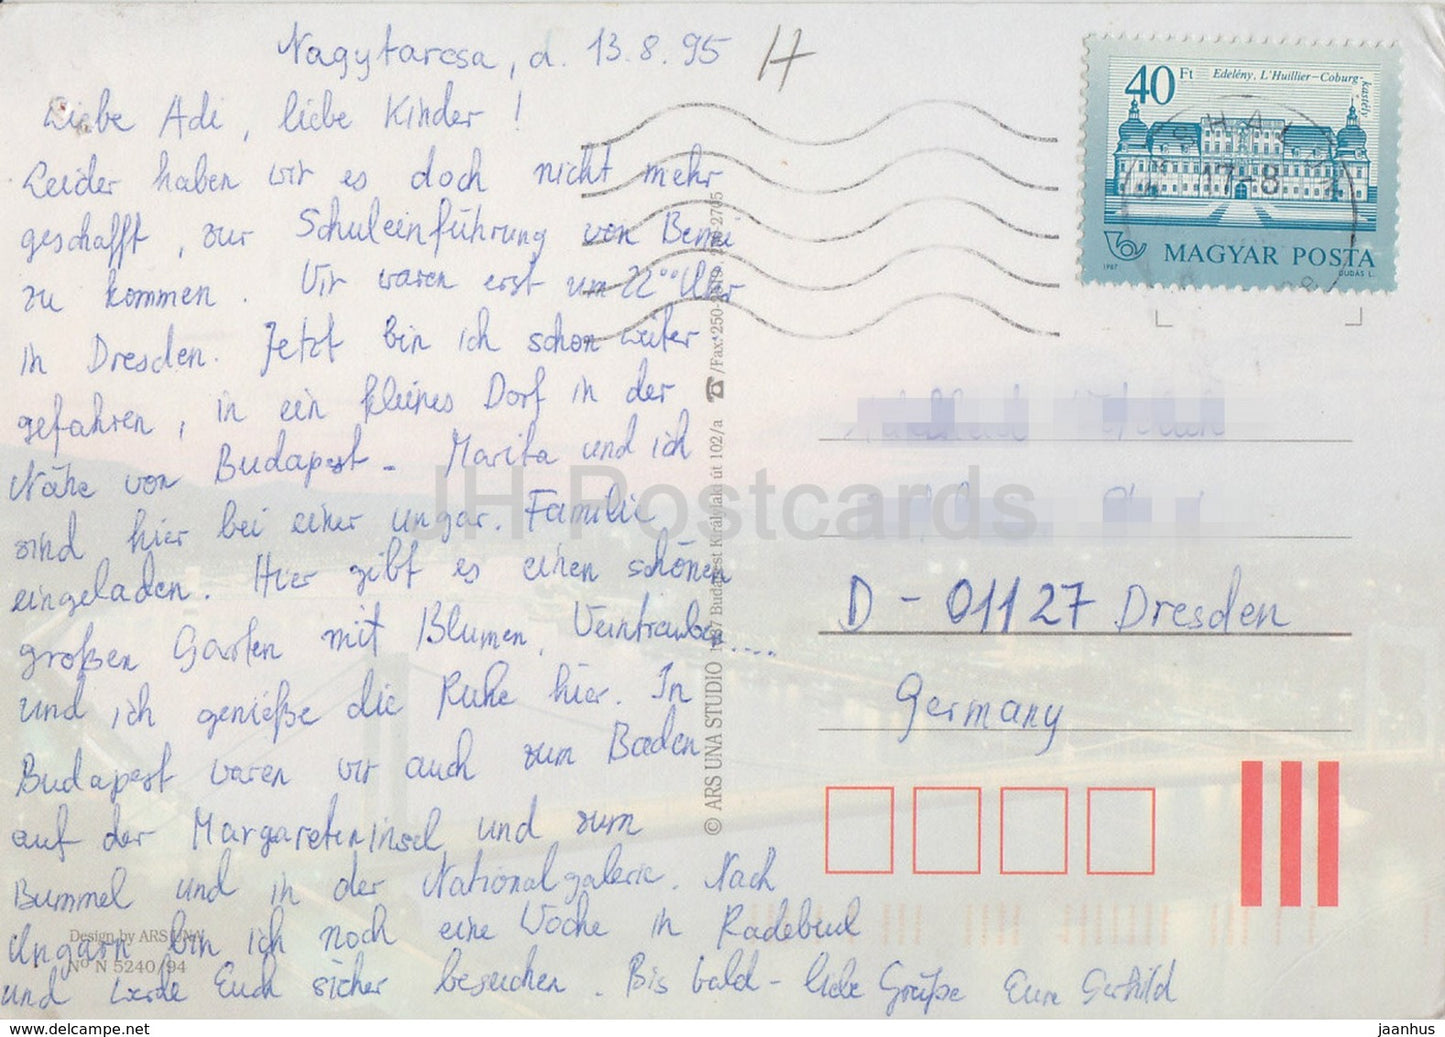 Nagytarcsa, d. 13.8.95
H
Liebe Adi, liebe Kinder!
Leider haben wir es doch nicht mehr
geschafft, zur Schuleinführung von Benni
zu kommen. Wir waren erst um 22⁰⁰ Uhr
in Dresden. Jetzt bin ich schon weiter
gefahren, in ein kleines Dorf in der
Nähe von Budapest. Marita und ich
sind hier bei einer ungar. Familie
eingeladen. Hier gibt es einen schönen
großen Garten mit Blumen, Weintrauben....
und ich genieße die Ruhe hier. In
Budapest waren wir auch zum Baden
auf der Margareteninsel und zum
Bummel und in der Nationalgalerie. Nach
Ungarn bin ich noch eine Woche in Radebeul
und werde Euch sicher besuchen. Bis bald - liebe Grüße Eure Gerhild
Design by ARS UNA
Nº N 5240/94
© ARS UNA STUDIO 1037 Budapest Királylaki út 102/a ☎/Fax: 250-2519
40 Ft Edelény, L'Huillier-Coburg-kastély
MAGYAR POSTA
1987 DUDÁS L.
17-8
D - 01127 Dresden
Germany
JH Postcards
www.delcampe.net
jaanhus